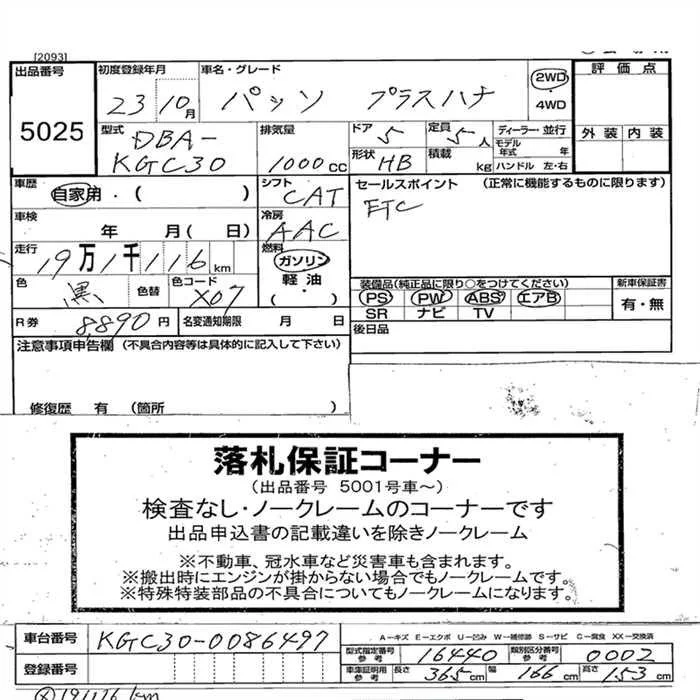 [2093]
出品番号 5025
初度登録年月 23 10月
車名・グレード パッソ プラスハナ
2WD
・
4WD
評価点
外装 内装
型式 DBA-
KGC30
排気量 1000 CC
ドア 5
定員 5 人
形状 HB
積載 kg
ディーラー・並行
モデル年式 年
ハンドル 左・右
車歴 自家用・( )
シフト CAT
セールスポイント (正常に機能するものに限ります)
ETC
車検 年 月( 日)
冷房 AAC
走行 19万1千116km
燃料 ガソリン
・
軽油
( )
色 黒 色替 色コード X07
装備品(純正品に限り○をつけてください)
PS PW ABS エアB
SR ナビ TV
新車保証書
有・無
R券 8,890円
名変通知期限 月 日
後日品
注意事項申告欄 (不具合内容等は具体的に記入して下さい)
修復歴 有 (箇所 )
落札保証コーナー
(出品番号 5001号車~)
検査なし・ノークレームのコーナーです
出品申込書の記載違いを除きノークレーム
※不動車、冠水車など災害車も含まれます。
※搬出時にエンジンが掛からない場合でもノークレームです。
※特殊特装部品の不具合についてもノークレームになります。
車台番号 KGC30-0086497
A-キズ E-エクボ U-凹み W-補修跡 S-サビ C-腐食 XX-交換済
型式指定番号 参考 16440
類別区分番号 参考 0002
登録番号
車庫証明用 参考 長さ 365cm 幅 166cm 高さ 153cm
191116 km